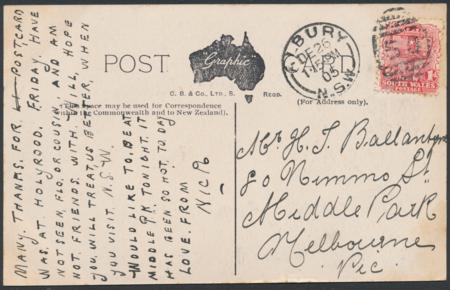 MANY. THANKS. FOR. POSTCARD
WAS. AT. HOLYROOD. FRIDAY. HAVE
NOT SEEN. FLO. OR COUSIN. AND AM
NOT. FRIENDS. WITH. WILL. HOPE
YOU. WILL TREAT US BETTER, WHEN
YOU VISIT. N.S.W.
WOULD LIKE TO. BE AT
MIDDLE PK TONIGHT. IT
HAS BEEN SO HOT. TO DAY
LOVE. FROM
POST
Graphic
C. B. & Co., LTD., S. REGD.
(This place may be used for Correspondence
within the Commonwealth and to New Zealand).
(For Address only).
ALBURY
DE 26
05
N.S.W
SOUTH WALES
POSTAGE
Mr H. J. Ballantyne
80 Nimmo St
Middle Park
Melbourne
Vic.